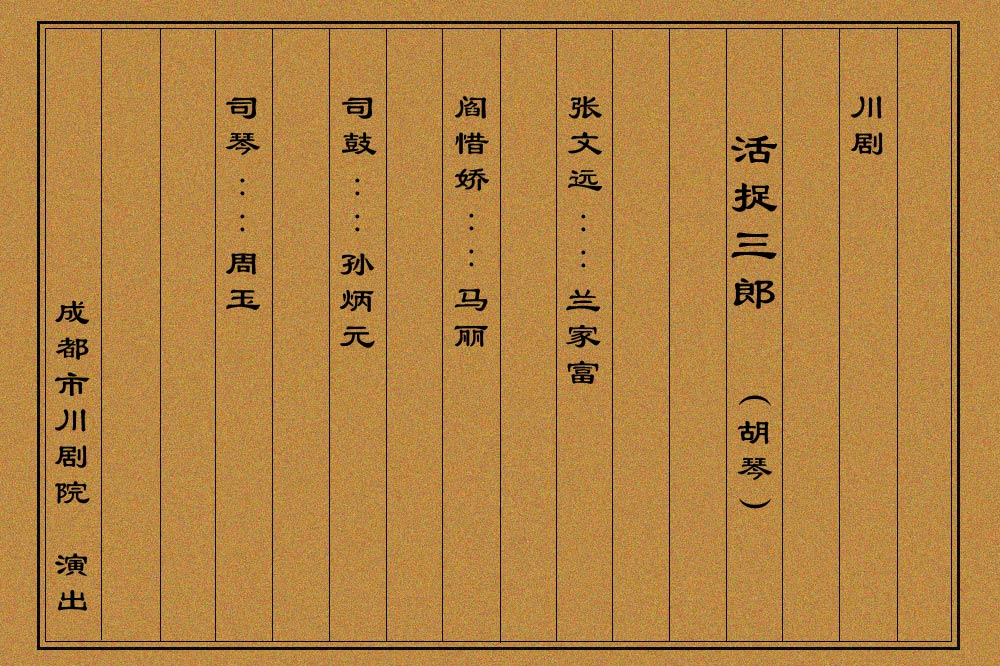 川剧
活捉三郎 （胡琴）
张文远：：兰家富
阎惜娇：：马丽
司鼓：：孙炳元
司琴：：周玉
成都市川剧院 演出